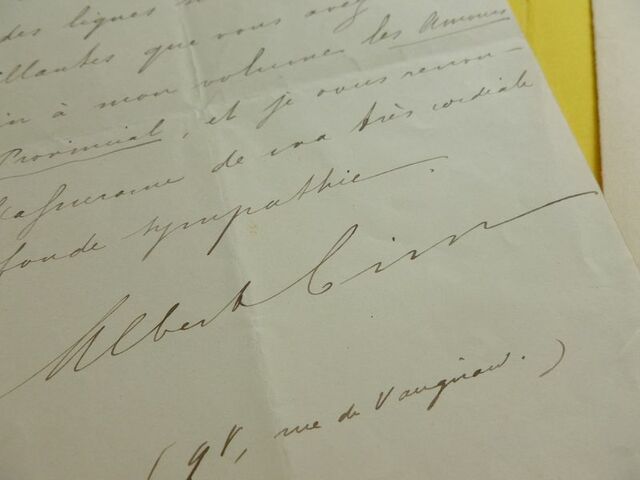 des lignes
illantes que vous avez
in à mon volumes les Amours
Provincial, et je vous renou-
l'assurance de ma très cordiale
fonde sympathie.
Albert Cim
(98, rue de Vaugirard.)